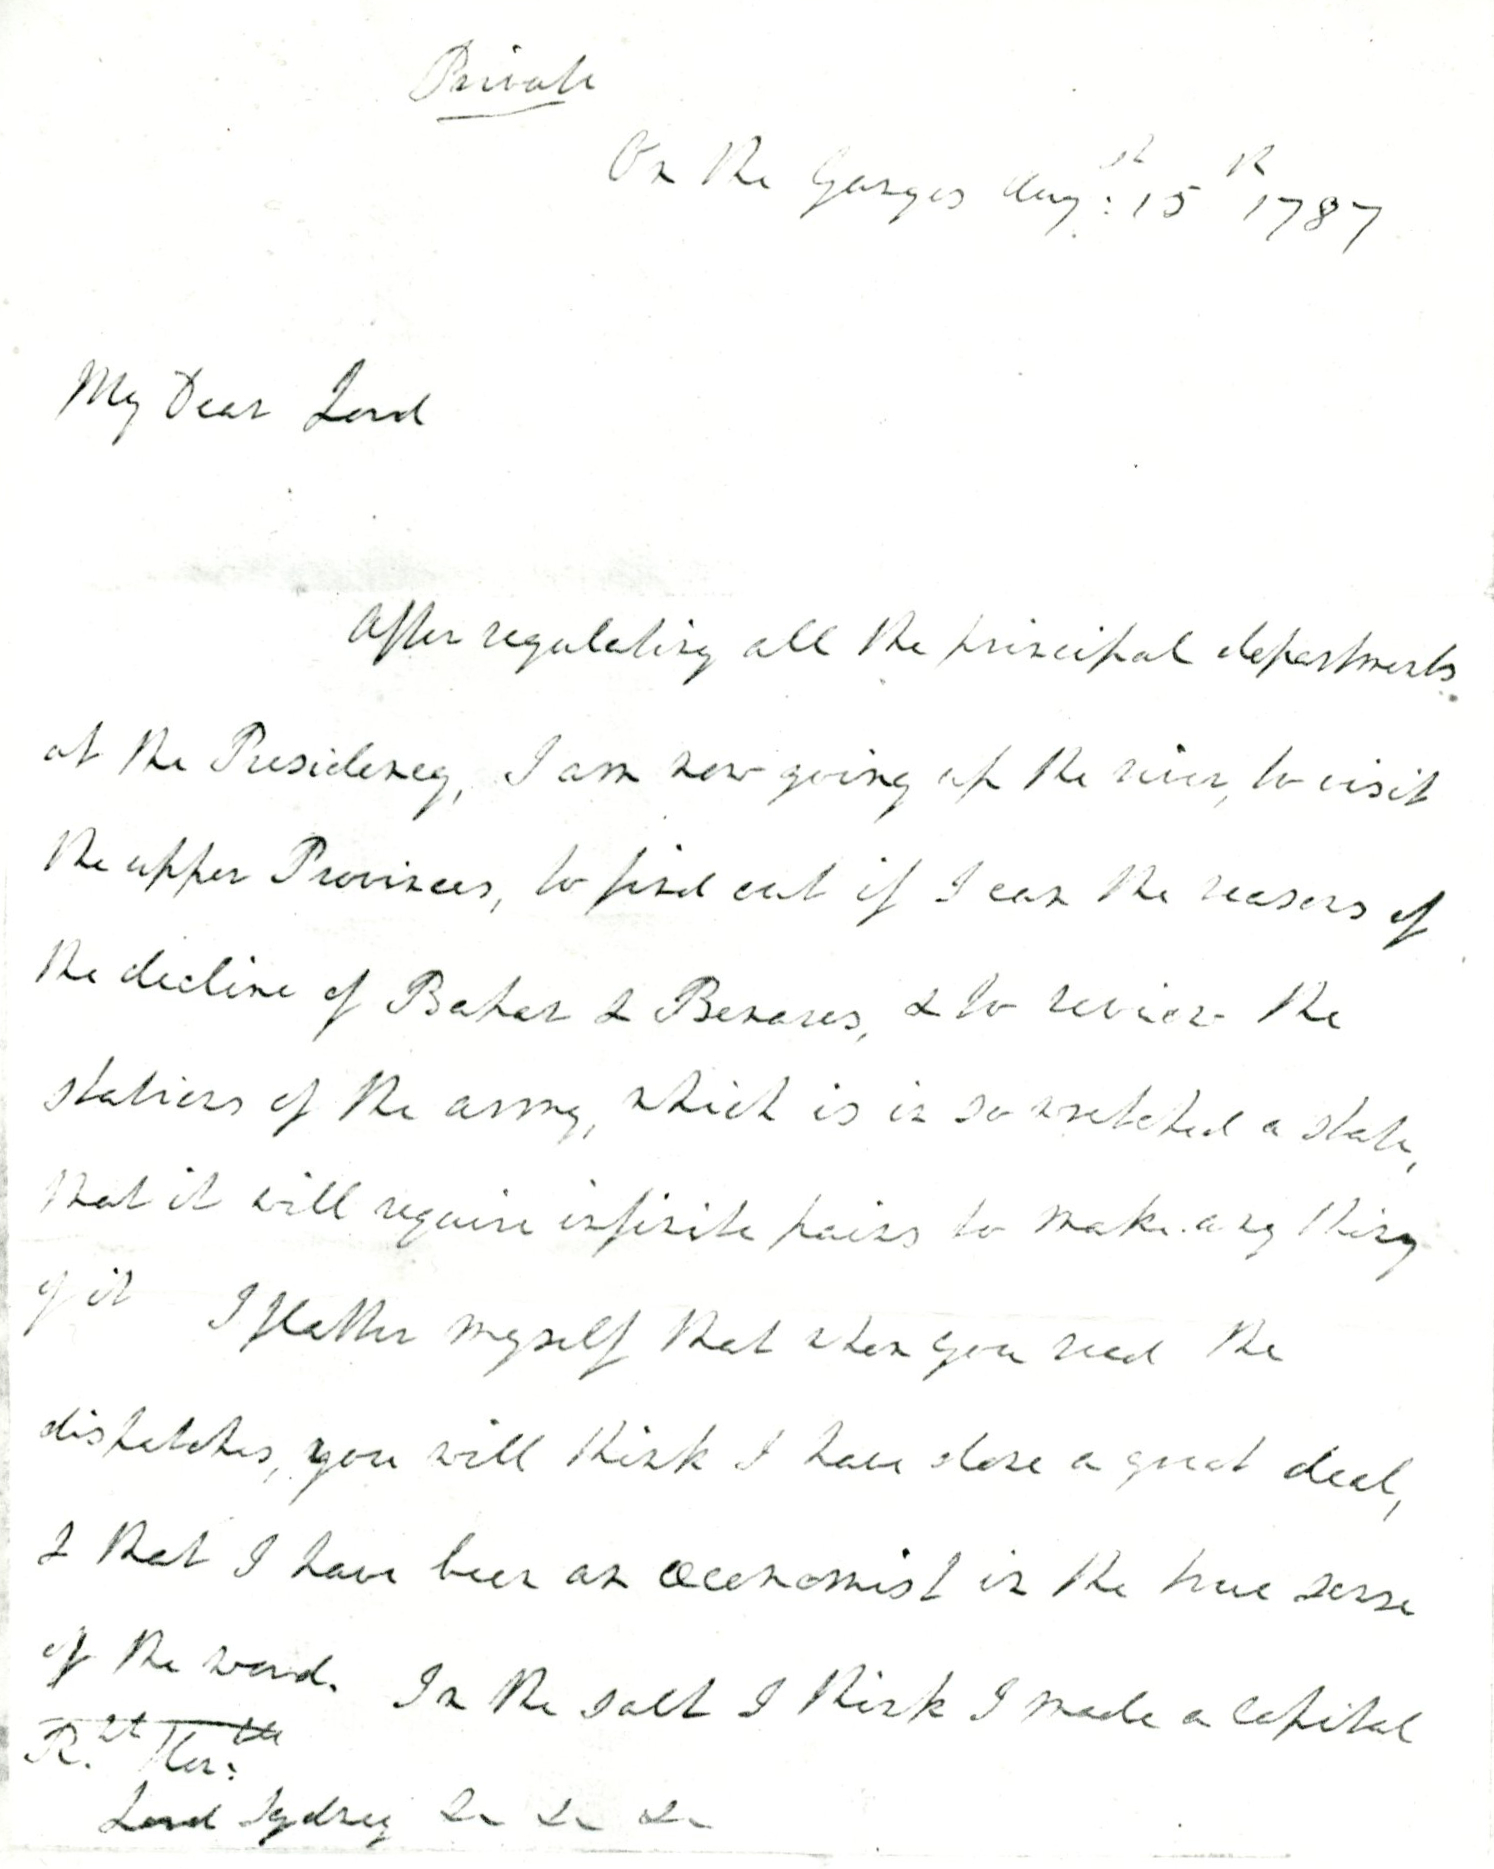 Private
On the Ganges Aug:st 15th 1787
My Dear Lord
After regulating all the principal departments
at the Presidency, I am now going up the river, to visit
the upper Provinces, to find out if I can the reasons of
the decline of Bahar & Benares, & to review the
stations of the army, which is in so wretched a state,
that it will require infinite pains to make any thing
of it I flatter myself that when you read the
dispatches, you will think I have done a great deal,
& that I have been an oeconomist in the true sense
of the word. In the salt I think I made a capital
R.ht Hon:ble
Lord Sydney &c &c &c